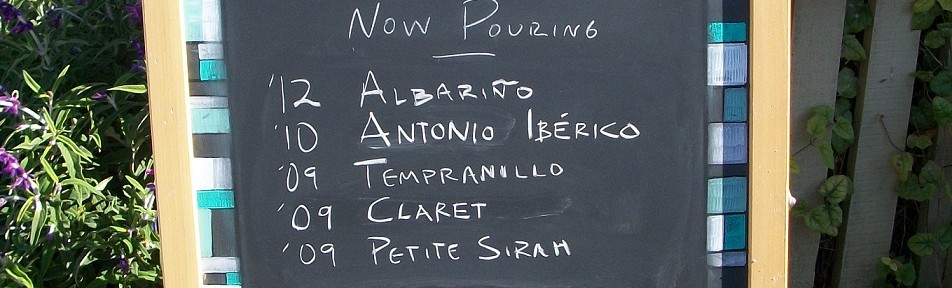 Now Pouring
'12 Albariño
'10 Antonio Ibérico
'09 Tempranillo
'09 Claret
'09 Petite Sirah